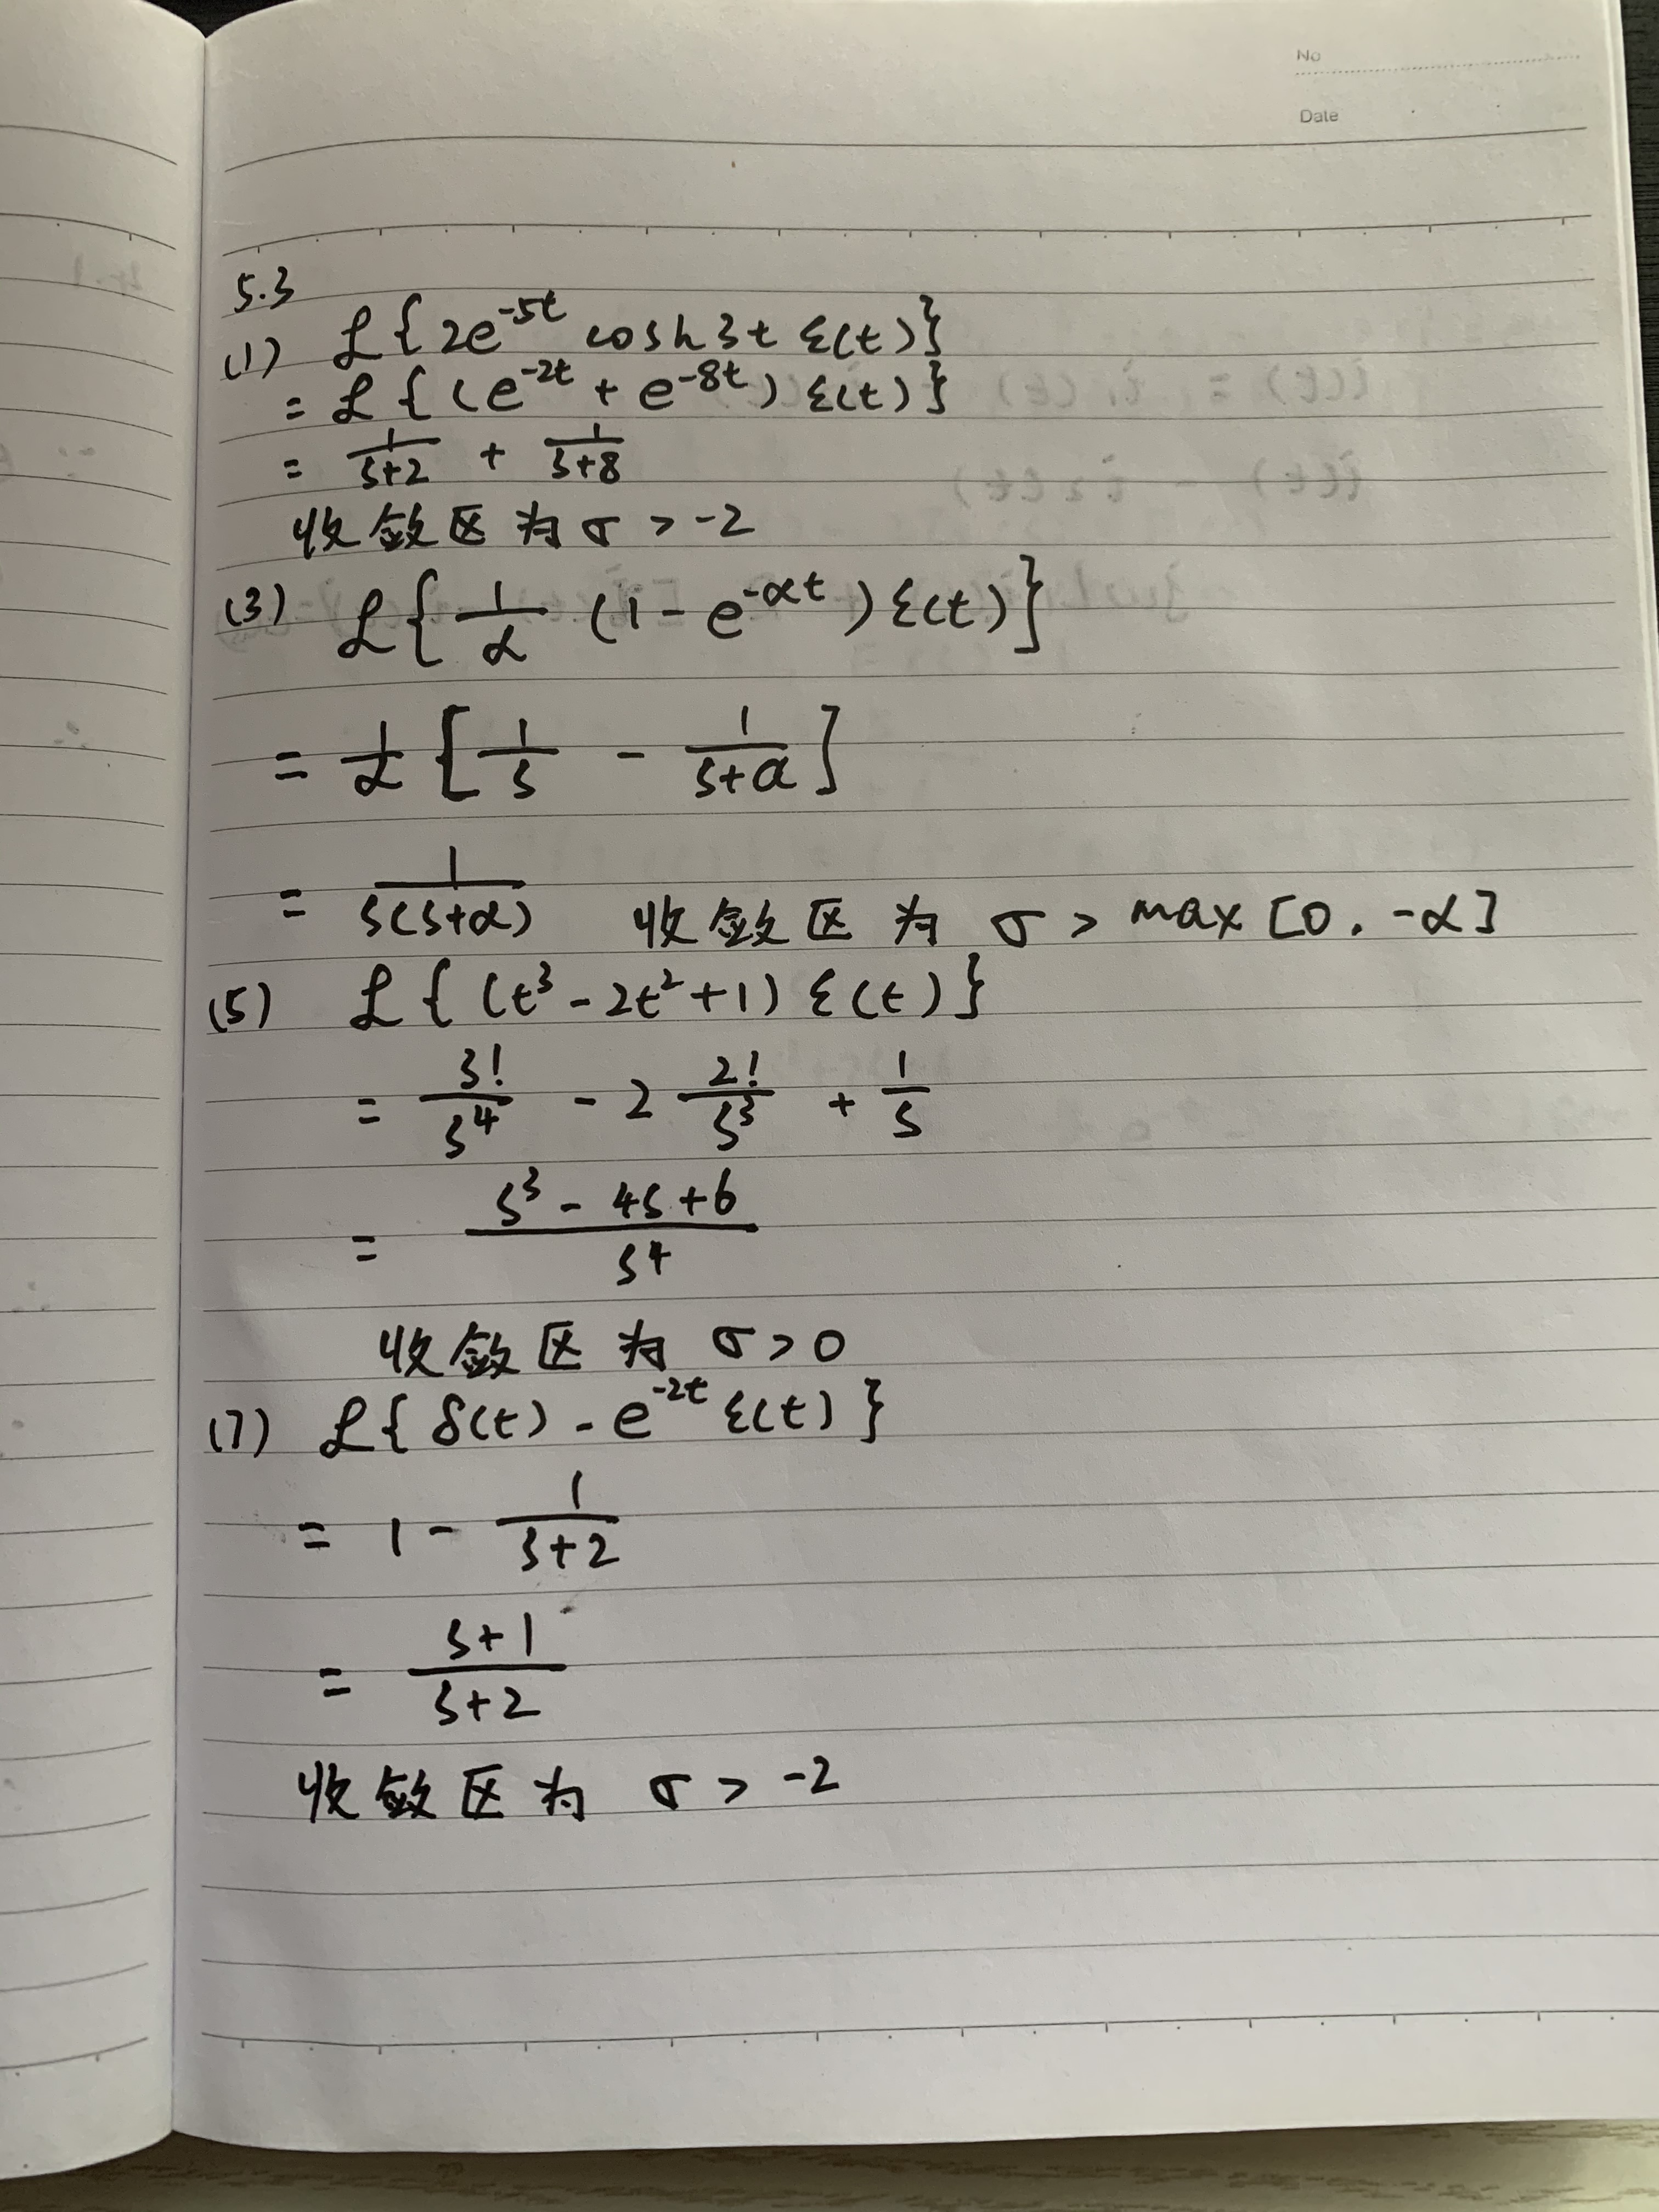 No
Date
5.3
(1) ℒ{2e^{-5t} cosh3t ε(t)}
= ℒ{(e^{-2t} + e^{-8t}) ε(t)}
= 1/(s+2) + 1/(s+8)
收敛区为 σ > -2
(3) ℒ{1/α (1 - e^{-αt}) ε(t)}
= 1/α [1/s - 1/(s+α)]
= 1/(s(s+α)) 收敛区为 σ > max [0, -α]
(5) ℒ{(t³ - 2t² + 1) ε(t)}
= 3!/s⁴ - 2 2!/s³ + 1/s
= (s³ - 4s + 6)/s⁴
收敛区为 σ > 0
(7) ℒ{δ(t) - e^{-2t} ε(t)}
= 1 - 1/(s+2)
= (s+1)/(s+2)
收敛区为 σ > -2